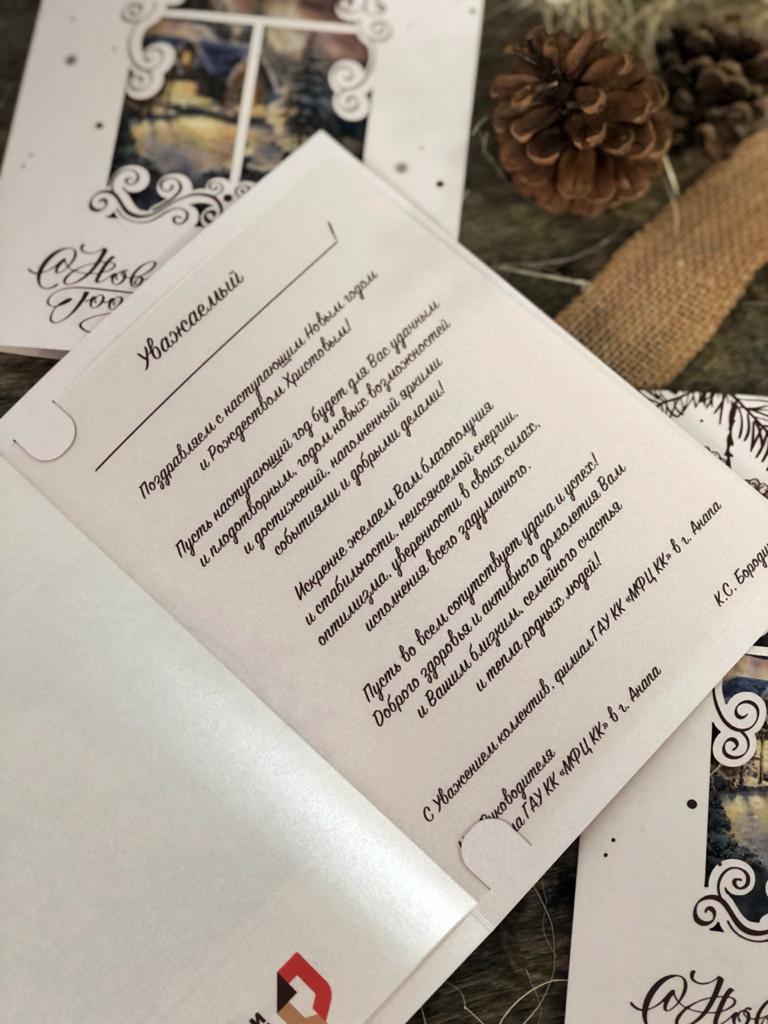 С Нов
год
Уважаемый
!
Поздравляем с наступающим Новым годом
и Рождеством Христовым!
Пусть наступающий год будет для Вас удачным
и плодотворным, годом новых возможностей
и достижений, наполненный яркими
событиями и добрыми делами!
Искренне желаем Вам благополучия
и стабильности, неиссякаемой энергии,
оптимизма, уверенности в своих силах,
исполнения всего задуманного.
Пусть во всем сопутствует удача и успех!
Доброго здоровья и активного долголетия Вам
и Вашим близким, семейного счастья
и тепла родных людей!
С Уважением коллектив, филиал ГАУ КК «МФЦ КК» в г. Анапа
Руководителя
ла ГАУ КК «МФЦ КК» в г. Анапа
К.С. Бороди
и
С Нов